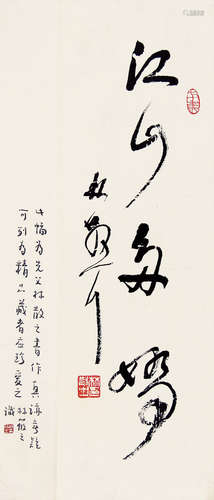 江山多娇
林散耳
此幅为先父林散之书作真迹无疑
可列为精品藏者应珍爱之
林筱之
识